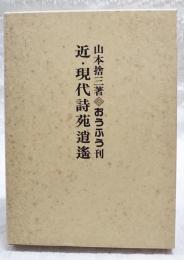 山本捨三著 おうふう刊
近・現代詩苑逍遙